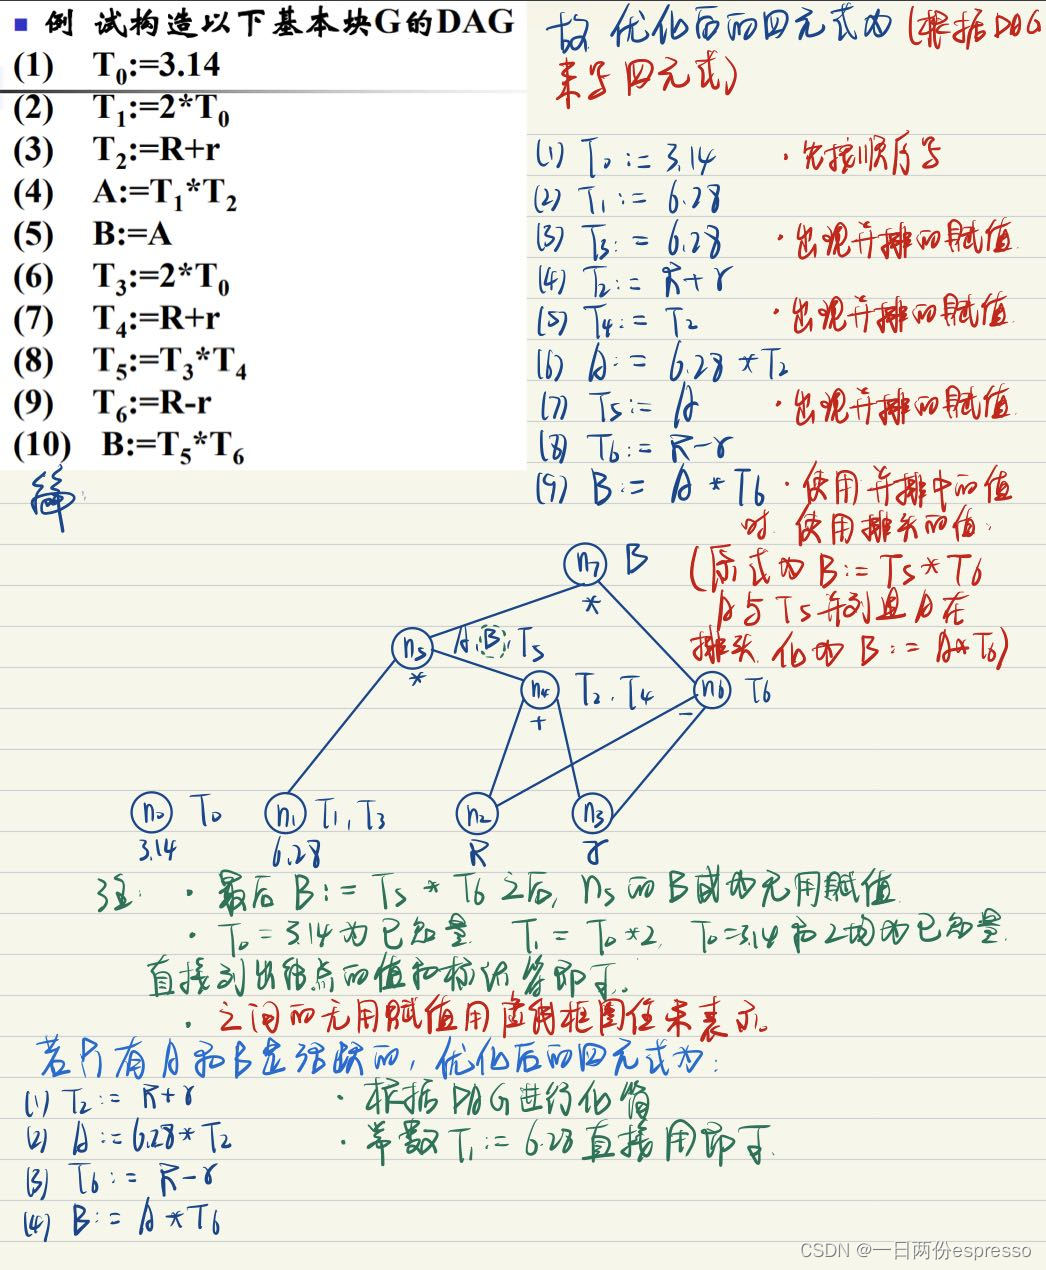 ■ 例 试构造以下基本块G的DAG
(1) T0:=3.14
(2) T1:=2*T0
(3) T2:=R+r
(4) A:=T1*T2
(5) B:=A
(6) T3:=2*T0
(7) T4:=R+r
(8) T5:=T3*T4
(9) T6:=R-r
(10) B:=T5*T6
解:
故 优化后的四元式为 (根据DAG
来写四元式)
(1) T0 := 3.14 ·先按顺序写
(2) T1 := 6.28
(3) T3 := 6.28 ·出现并排的赋值
(4) T2 := R+r
(5) T4 := T2 ·出现并排的赋值
(6) A := 6.28 * T2
(7) T5 := A ·出现并排的赋值
(8) T6 := R-r
(9) B := A * T6 ·使用并排中的值
时 使用排头的值.
(原式为 B := T5 * T6
A与T5并列且A在
排头 化为 B := A*T6)
n7 B
*
n5 A B T5
*
n4 T2,T4
+
n6 T6
-
n0 T0
3.14
n1 T1,T3
6.28
n2
R
n3
r
注: · 最后 B := T5 * T6 之后, n5 的 B 成为无用赋值
· T0 = 3.14 为已知量 T1 = T0*2, T0=3.14 和 2 均为已知量.
直接列出结点的值和标识符即可。
· 之间的无用赋值用虚线框圈住来表示。
若只有A和B是活跃的, 优化后的四元式为:
(1) T2 := R+r · 根据DAG进行化简
(2) A := 6.28 * T2 · 常数 T1 := 6.28 直接用即可.
(3) T6 := R-r
(4) B := A * T6
CSDN @一日两份espresso